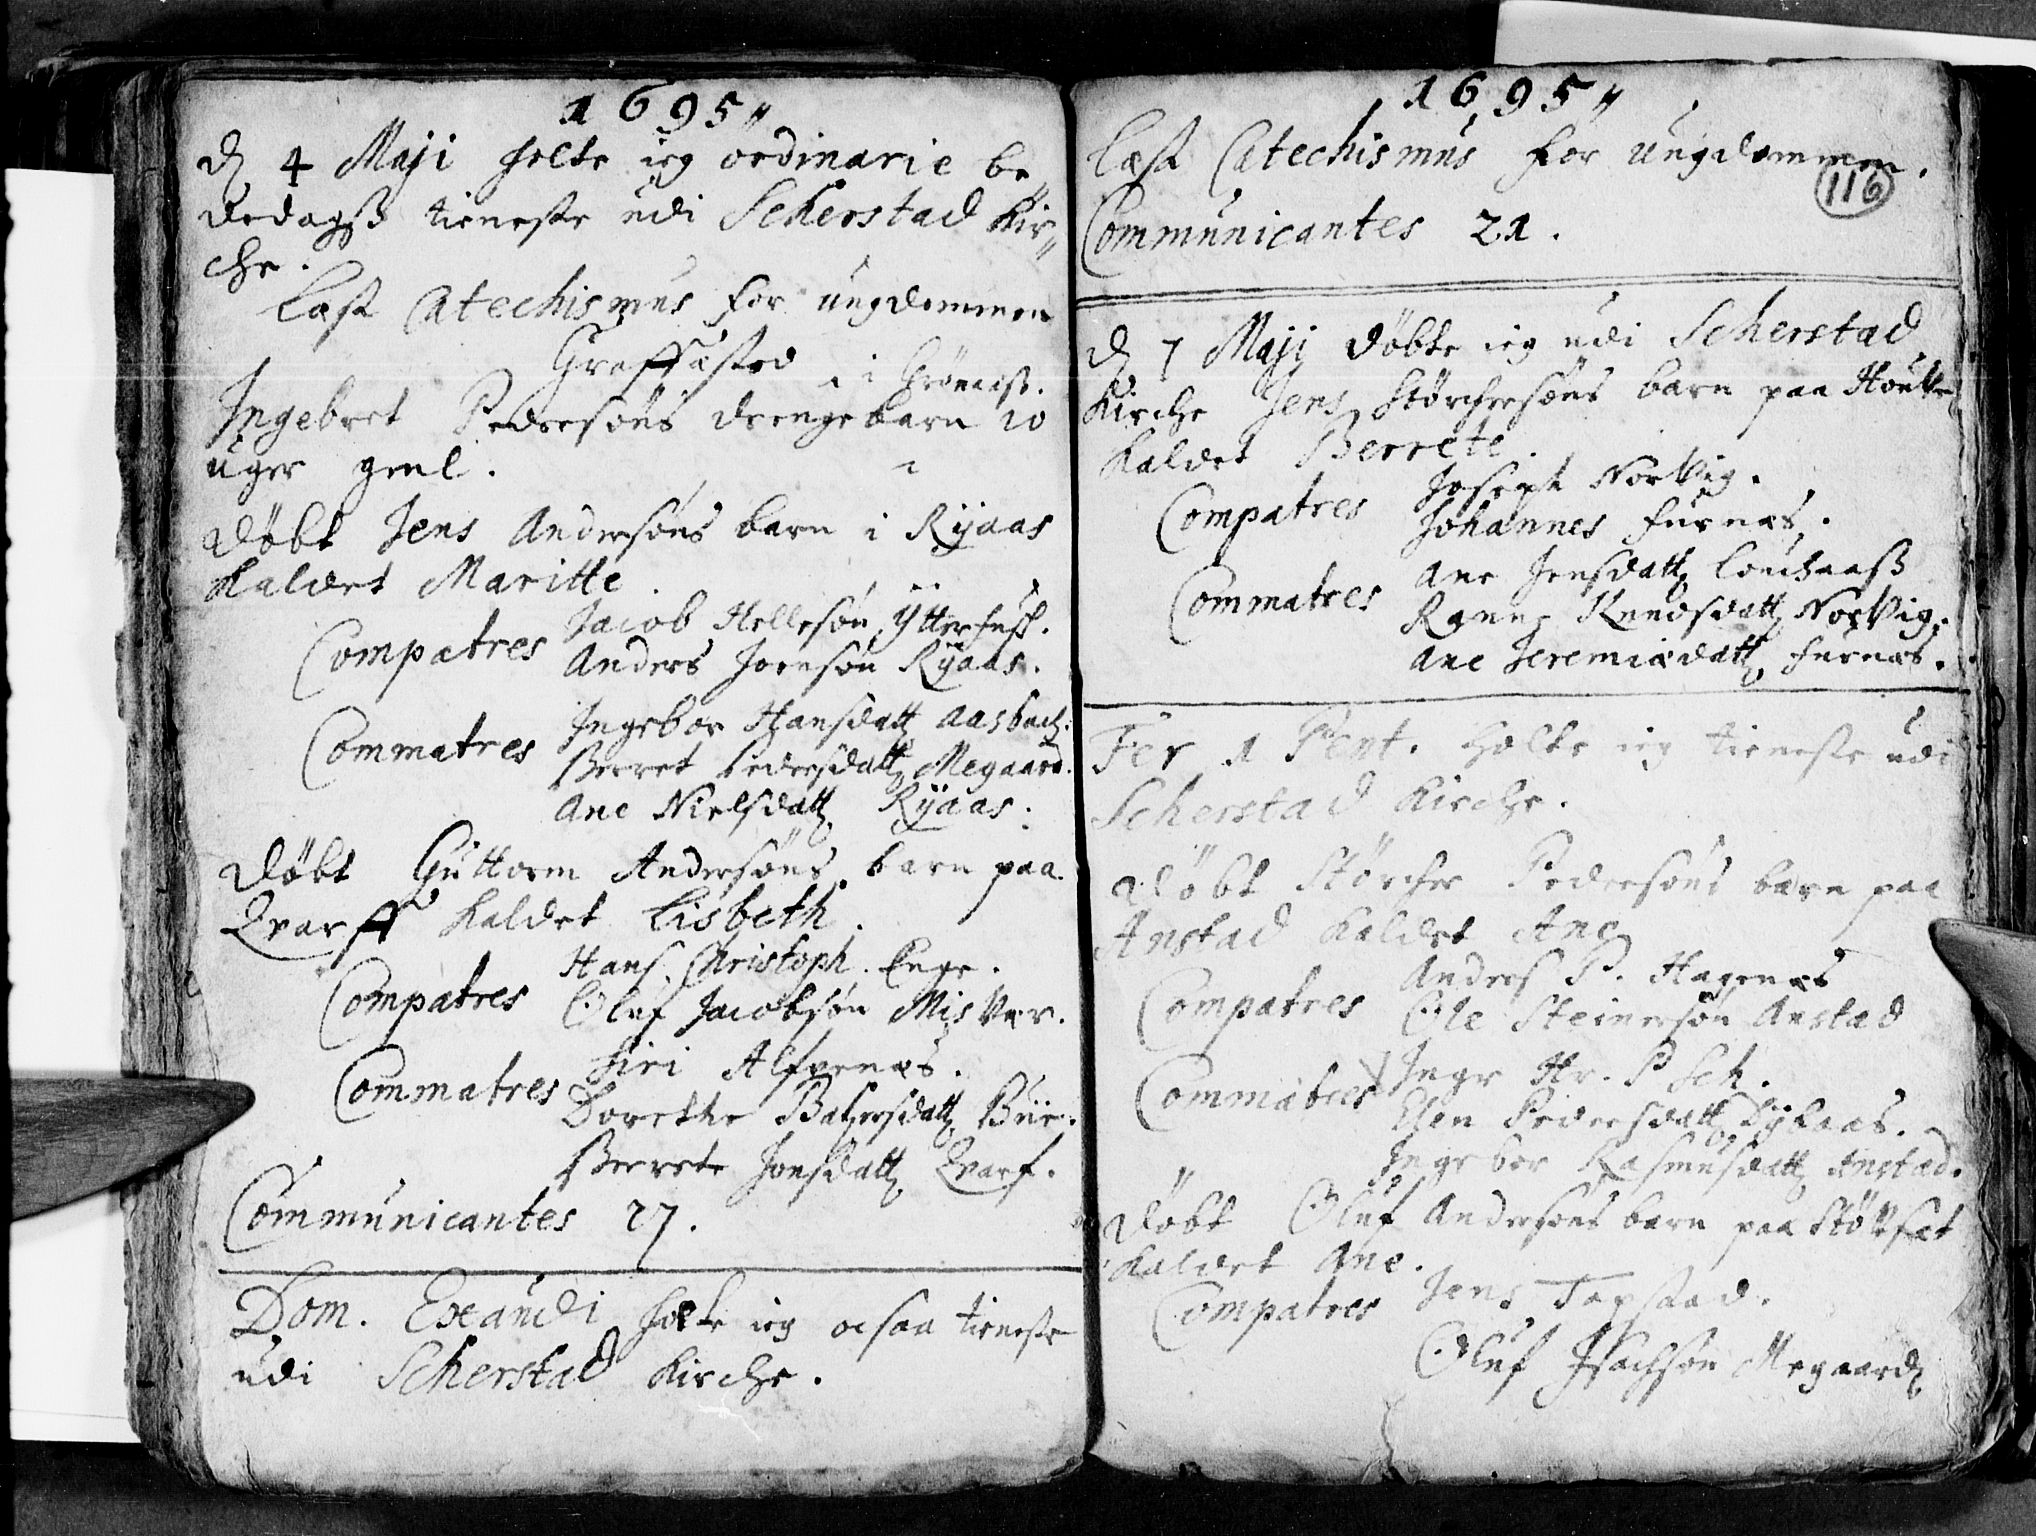 1695,,
d 4 Maji holte ieg ordinarie be,,
dedagß tieneste udi Scherstad Kir,,
che.
Læst Catechismus for ungdommen
Graffæsted
Ingebret Pedersøns drengebarn 20
uger gml.
Døbt Jens Andersøns barn i Ryaas
Kaldet Maritte
Compatres Jacob Hellesøn Ytterhuß.
Anders Jornsøn Ryaas.
Commatres Ingebor Hansdatt Aasbach.
Berret Pedersdatt Megaard.
Ane Nielsdatt Ryaas.
Døbt Guttorm Andersøns barn paa
Qvarff Kaldet Lisbeth.
Compatres Hans Christoph. Enge.
Oluf Jacobsøn Misvær.
Commatres Siri Alfvenæs.
Dorethe Baltzersdatt Bÿe.
Berrete Jonsdatt Qvarf.
Communicantes 27.
Dom. Exaudi holte ieg ocsaa tieneste
udi Scherstad Kirche.
1695,,
116
Læst Catechismus for ungdommen.
Communicantes 21.
d 7 Maji Døbte ieg udi Scherstad
Kirche Jens Størchersøns barn paa
Kaldet Berrete.
Compatres Joseph Norvig.
Johannes Furnæs.
Commatres Ane Jensdatt
Knudsdatt Norvig.
Ane Jeremiædatt Furnæs.
Fer 1 Pent. Holte ieg tieneste udi
Scherstad Kirche.
Døbt Størcher Pedersøns barn paa
Anstad Kaldet Ane
Compatres Anders P. Hagenæs
Ole Steinersøn Anstad
Commatres Inger Hr. P Sch.
Elen Pedersdatt
Ingebor Rasmusdatt Anstad.
Døbt Oluf Andersøns barn paa Støvset
Kaldet Ane.
Compatres Jens Tapstad.
Oluf Isachsøn Megaard